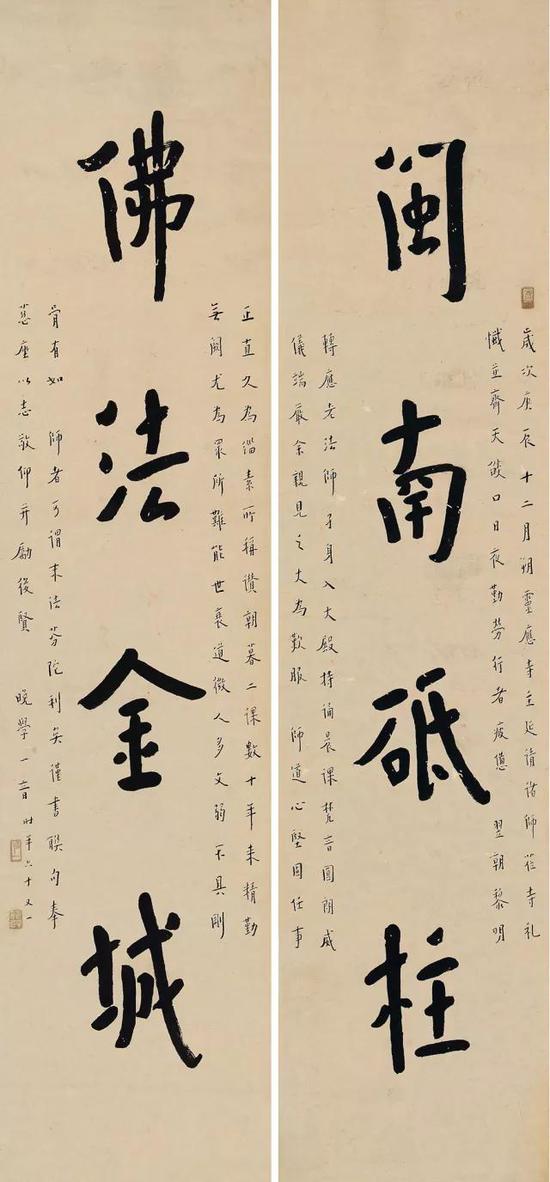 閩南砥柱
歲次庚辰十二月朔靈應寺主延請諸師蒞寺礼
懺並齋天燄口日夜勤勞行者疲憊 翌朝黎明
轉應老法師孑身入大殿持誦晨課梵音圓朗威
儀端嚴余親見之大為歎服 師道心堅固任事
佛法金城
正直久為緇素所稱讚朝暮二課數十年来精勤
無闕尤為眾所難能世衰道微人多文弱不具剛
骨有如 師者可謂末法芬陀利矣謹書聯句奉
慈座以志敬仰并勵後賢 晚學一音 时年六十又一